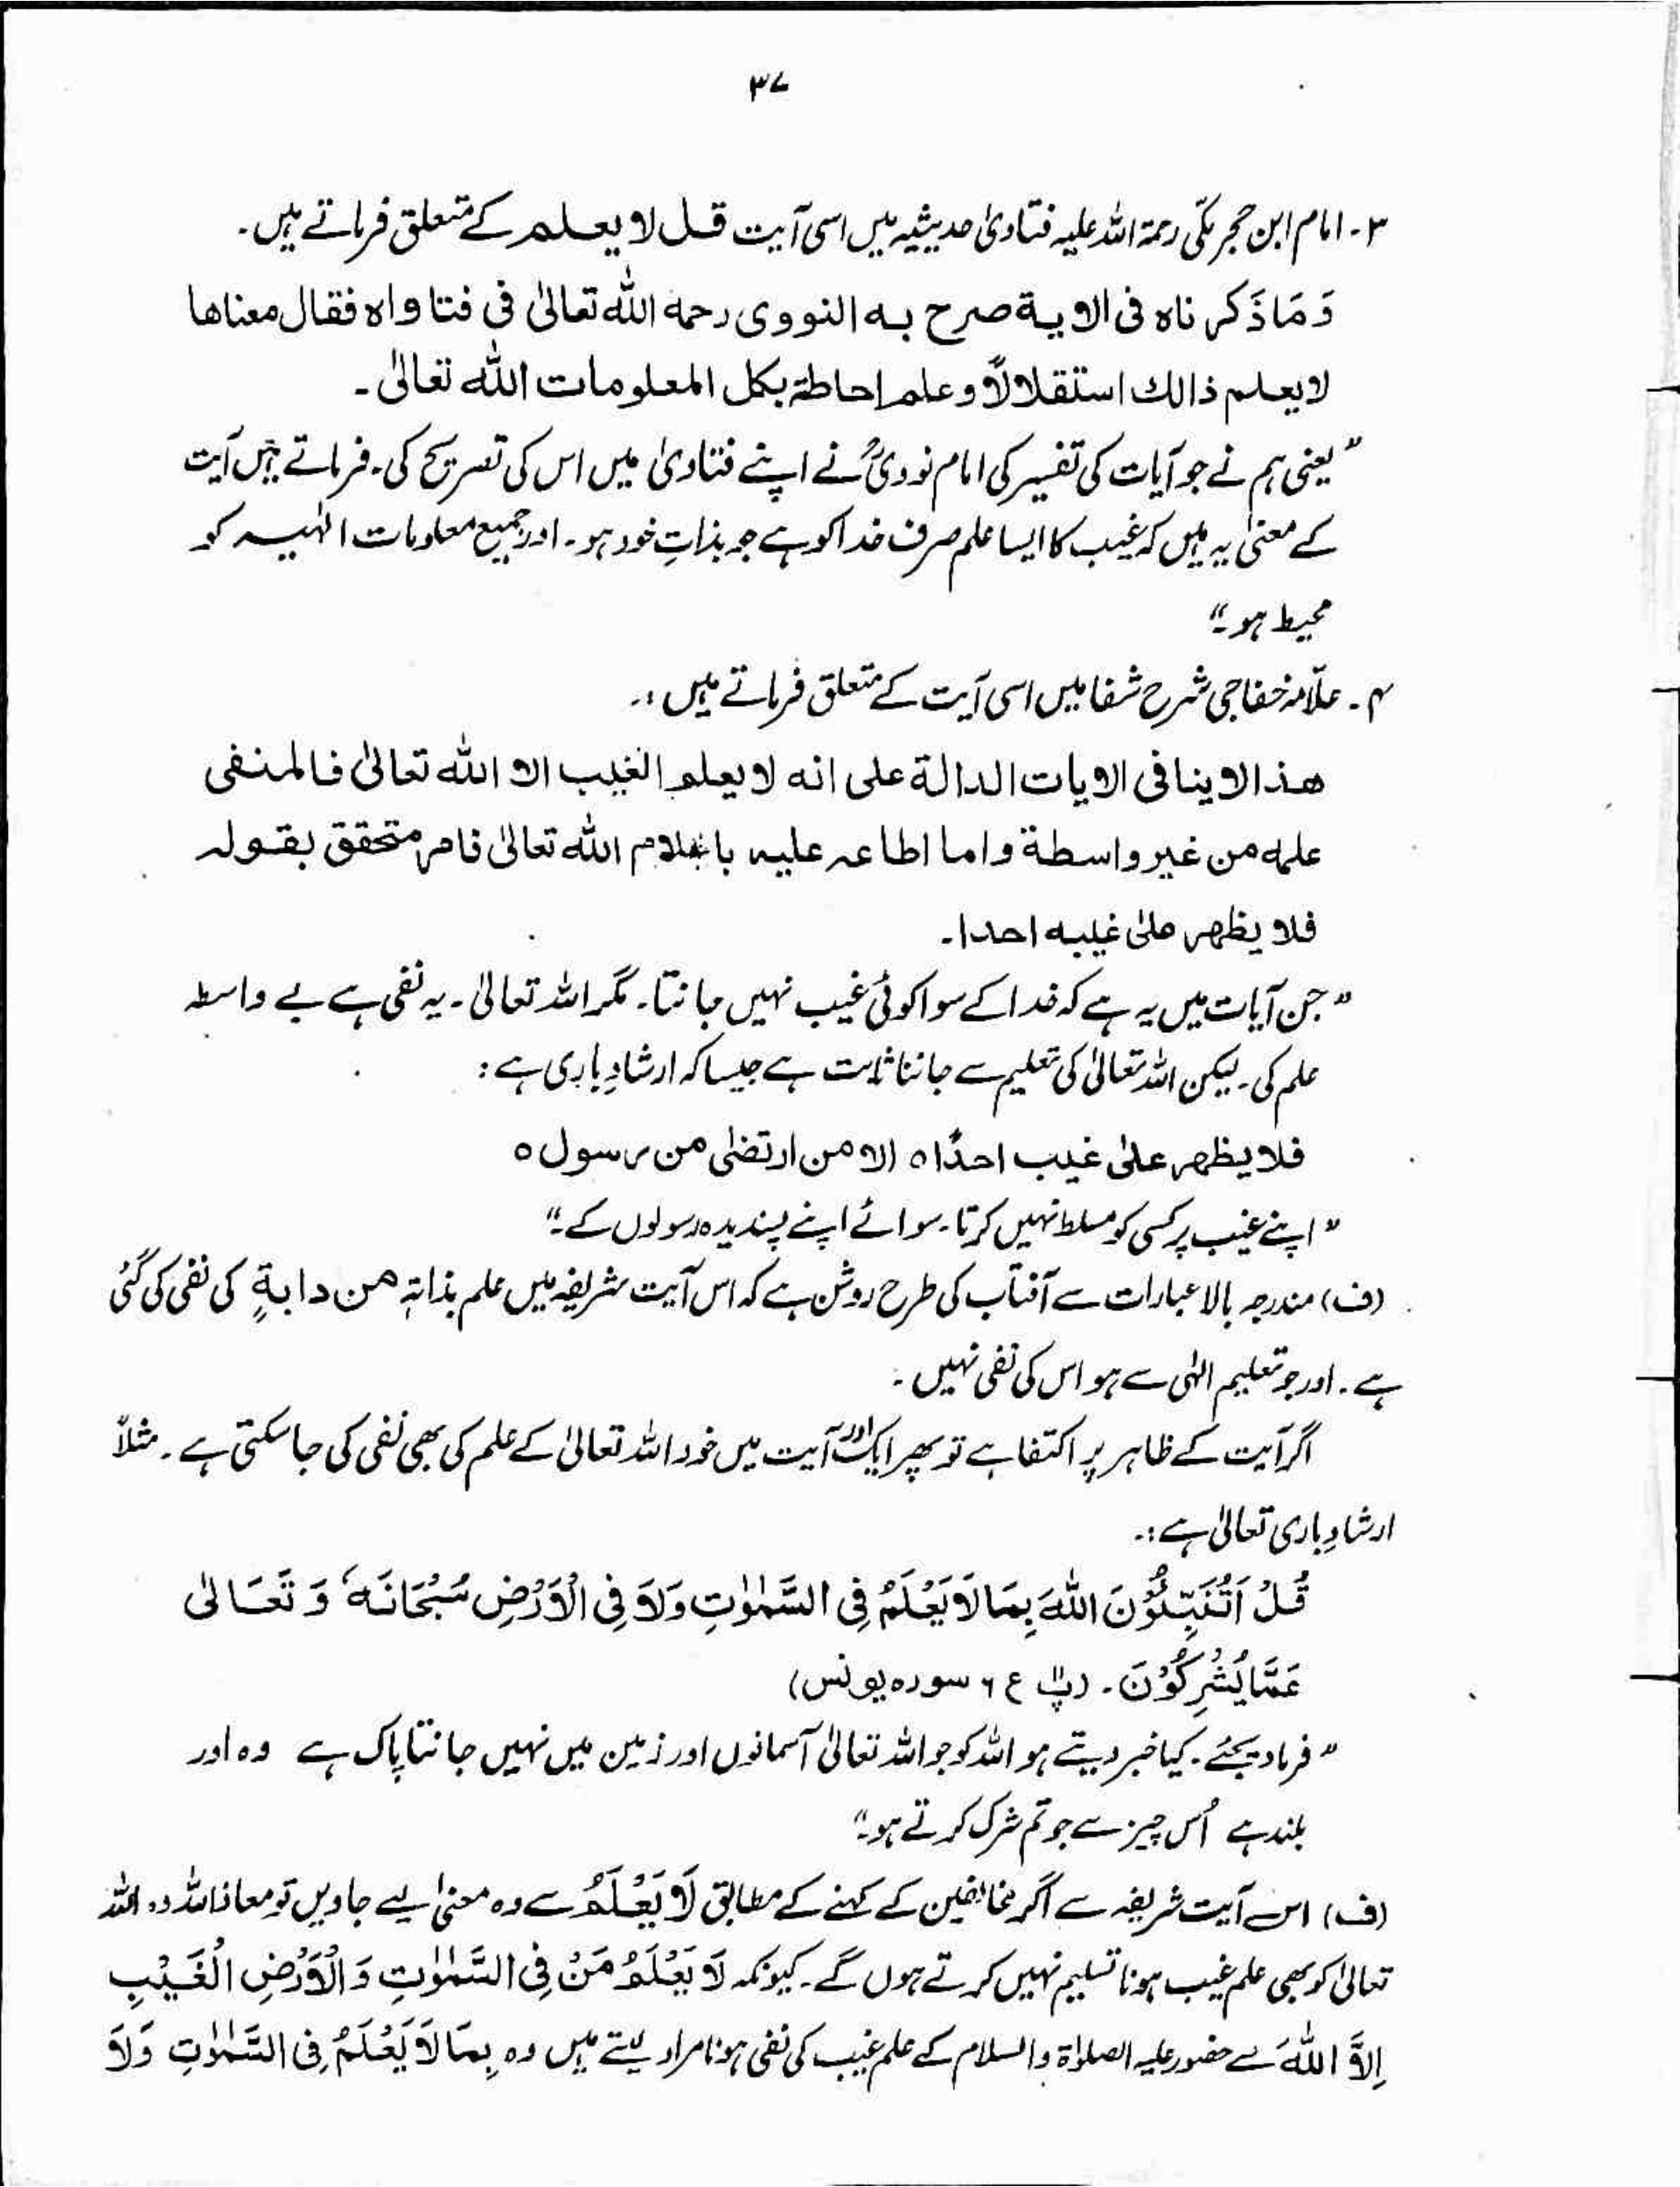 ۳۷
۳۔ امام ابن حجر مکّی رحمۃ اللہ علیہ فتاویٰ حدیثیہ میں اسی آیت قل لا یعلم کے متعلق فرماتے ہیں۔
وَمَا ذَکرناہ فی الایۃ صرح بہ النووی رحمہ اللہ تعالیٰ فی فتاواہ فقال معناھا
لا یعلم ذالک استقلالاً و علم احاطۃ بکل المعلومات اللہ تعالیٰ۔
”یعنی ہم نے جو آیات کی تفسیر کی امام نووی نے اپنے فتاویٰ میں اس کی تصریح کی۔ فرماتے ہیں آیت
کے معنیٰ یہ ہیں کہ غیب کا ایسا علم صرف خدا کو ہے جو بذاتِ خود ہو۔ اور جمیع معلومات الٰہیہ کو
محیط ہو۔“
۴۔ علّامہ خفاجی شرح شفا میں اسی آیت کے متعلق فرماتے ہیں :۔
ھذا لا ینافی الایات الدالۃ علی انہ لا یعلم الغیب الا اللہ تعالیٰ فالمنفی
علمہ من غیر واسطۃ و اما اطاعہ علیہ باعلام اللہ تعالیٰ فامر متحقق بقولہ
فلا یظھر علیٰ غیبہ احدا۔
”جن آیات میں یہ ہے کہ خدا کے سوا کوئی غیب نہیں جانتا۔ مگر اللہ تعالیٰ۔ یہ نفی ہے بے واسطہ
علم کی۔ لیکن اللہ تعالیٰ کی تعلیم سے جاننا ثابت ہے جیسا کہ ارشادِ باری ہے :
فلا یظھر علیٰ غیب احدًا ہ الا من ارتضیٰ من رسول ہ
”اپنے غیب پر کسی کو مسلط نہیں کرتا۔ سوائے اپنے پسندیدہ رسولوں کے۔“
(ف) مندرجہ بالا عبارات سے آفتاب کی طرح روشن ہے کہ اس آیت شریفہ میں علم بذاتہٖ من دابۃٍ کی نفی کی گئی
ہے۔ اور جو تعلیم الٰہی سے ہو اس کی نفی نہیں۔
اگر آیت کے ظاہر پر اکتفا ہے تو پھر ایک اور آیت میں خود اللہ تعالیٰ کے علم کی بھی نفی کی جا سکتی ہے۔ مثلاً
ارشادِ باری تعالیٰ ہے :۔
قُلْ اَتُنَبِّئُوْنَ اللہَ بِمَا لَا یَعْلَمُ فِی السَّمٰوٰتِ وَلَا فِی الْاَرْضِ سُبْحَانَہٗ وَ تَعَالٰی
عَمَّا یُشْرِکُوْنَ۔ (پ۱۱ ع ۶ سورہ یونس)
”فرما دیجئے۔ کیا خبر دیتے ہو اللہ کو جو اللہ تعالیٰ آسمانوں اور زمین میں نہیں جانتا پاک ہے وہ اور
بلند ہے اُس چیز سے جو تم شرک کرتے ہو۔“
(ف) اس آیت شریفہ سے اگر مخالفین کے کہنے کے مطابق لَا یَعْلَمُ سے وہ معنیٰ لیے جاویں تو معاذ اللہ وہ اللہ
تعالیٰ کو بھی علم غیب ہونا تسلیم نہیں کرتے ہوں گے۔ کیونکہ لَا یَعْلَمُ مَنْ فِی السَّمٰوٰتِ وَالْاَرْضِ الْغَیْبِ
اِلَّا اللہَ سے حضور علیہ الصلوٰۃ والسلام کے علم غیب کی نفی ہونا مراد لیتے ہیں وہ بِمَا لَا یَعْلَمُ فِی السَّمٰوٰتِ وَلَا